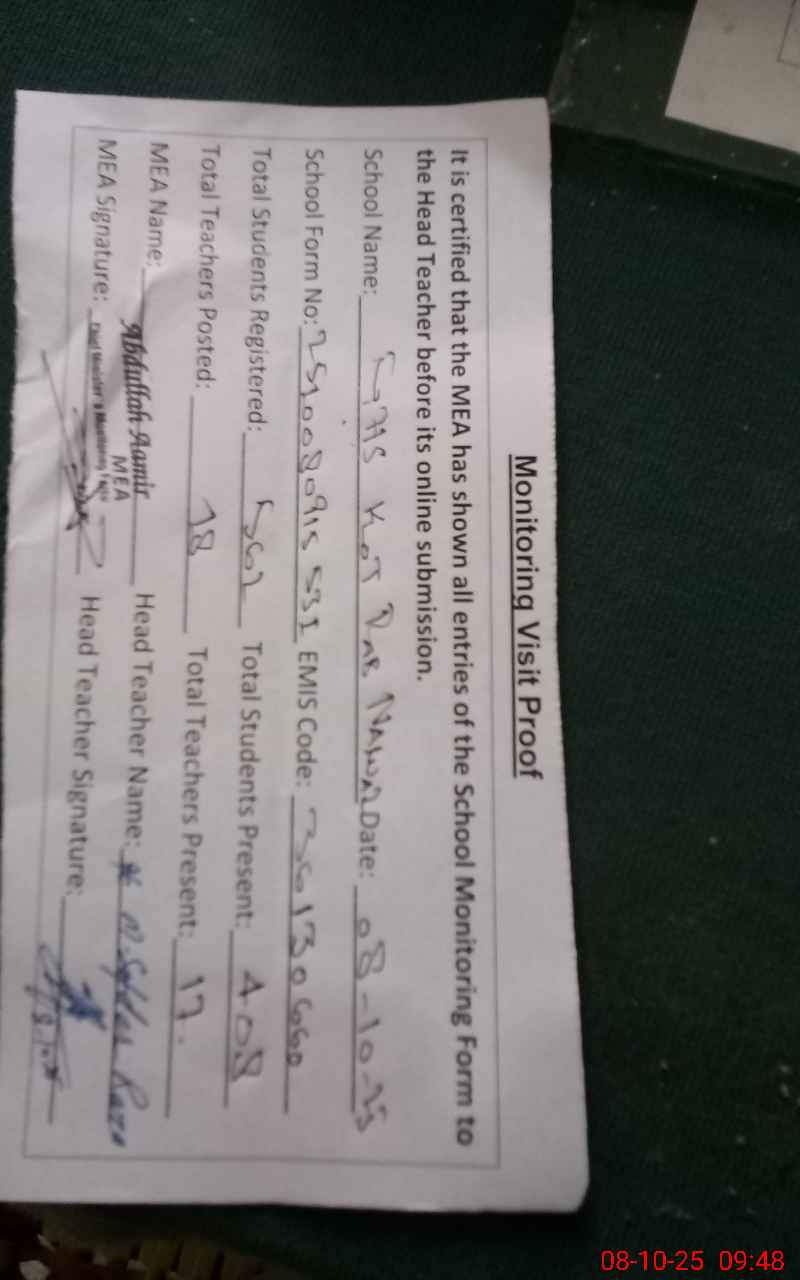 Monitoring Visit Proof
It is certified that the MEA has shown all entries of the School Monitoring Form to
the Head Teacher before its online submission.
School Name: Kot Date: 08-10-25
School Form No: EMIS Code:
Total Students Registered: 562 Total Students Present: 408
Total Teachers Posted: 18 Total Teachers Present: 17.
MEA Name: Abdullah Aamir Head Teacher Name: Raza
MEA
MEA Signature: Head Teacher Signature:
08-10-25 09:48